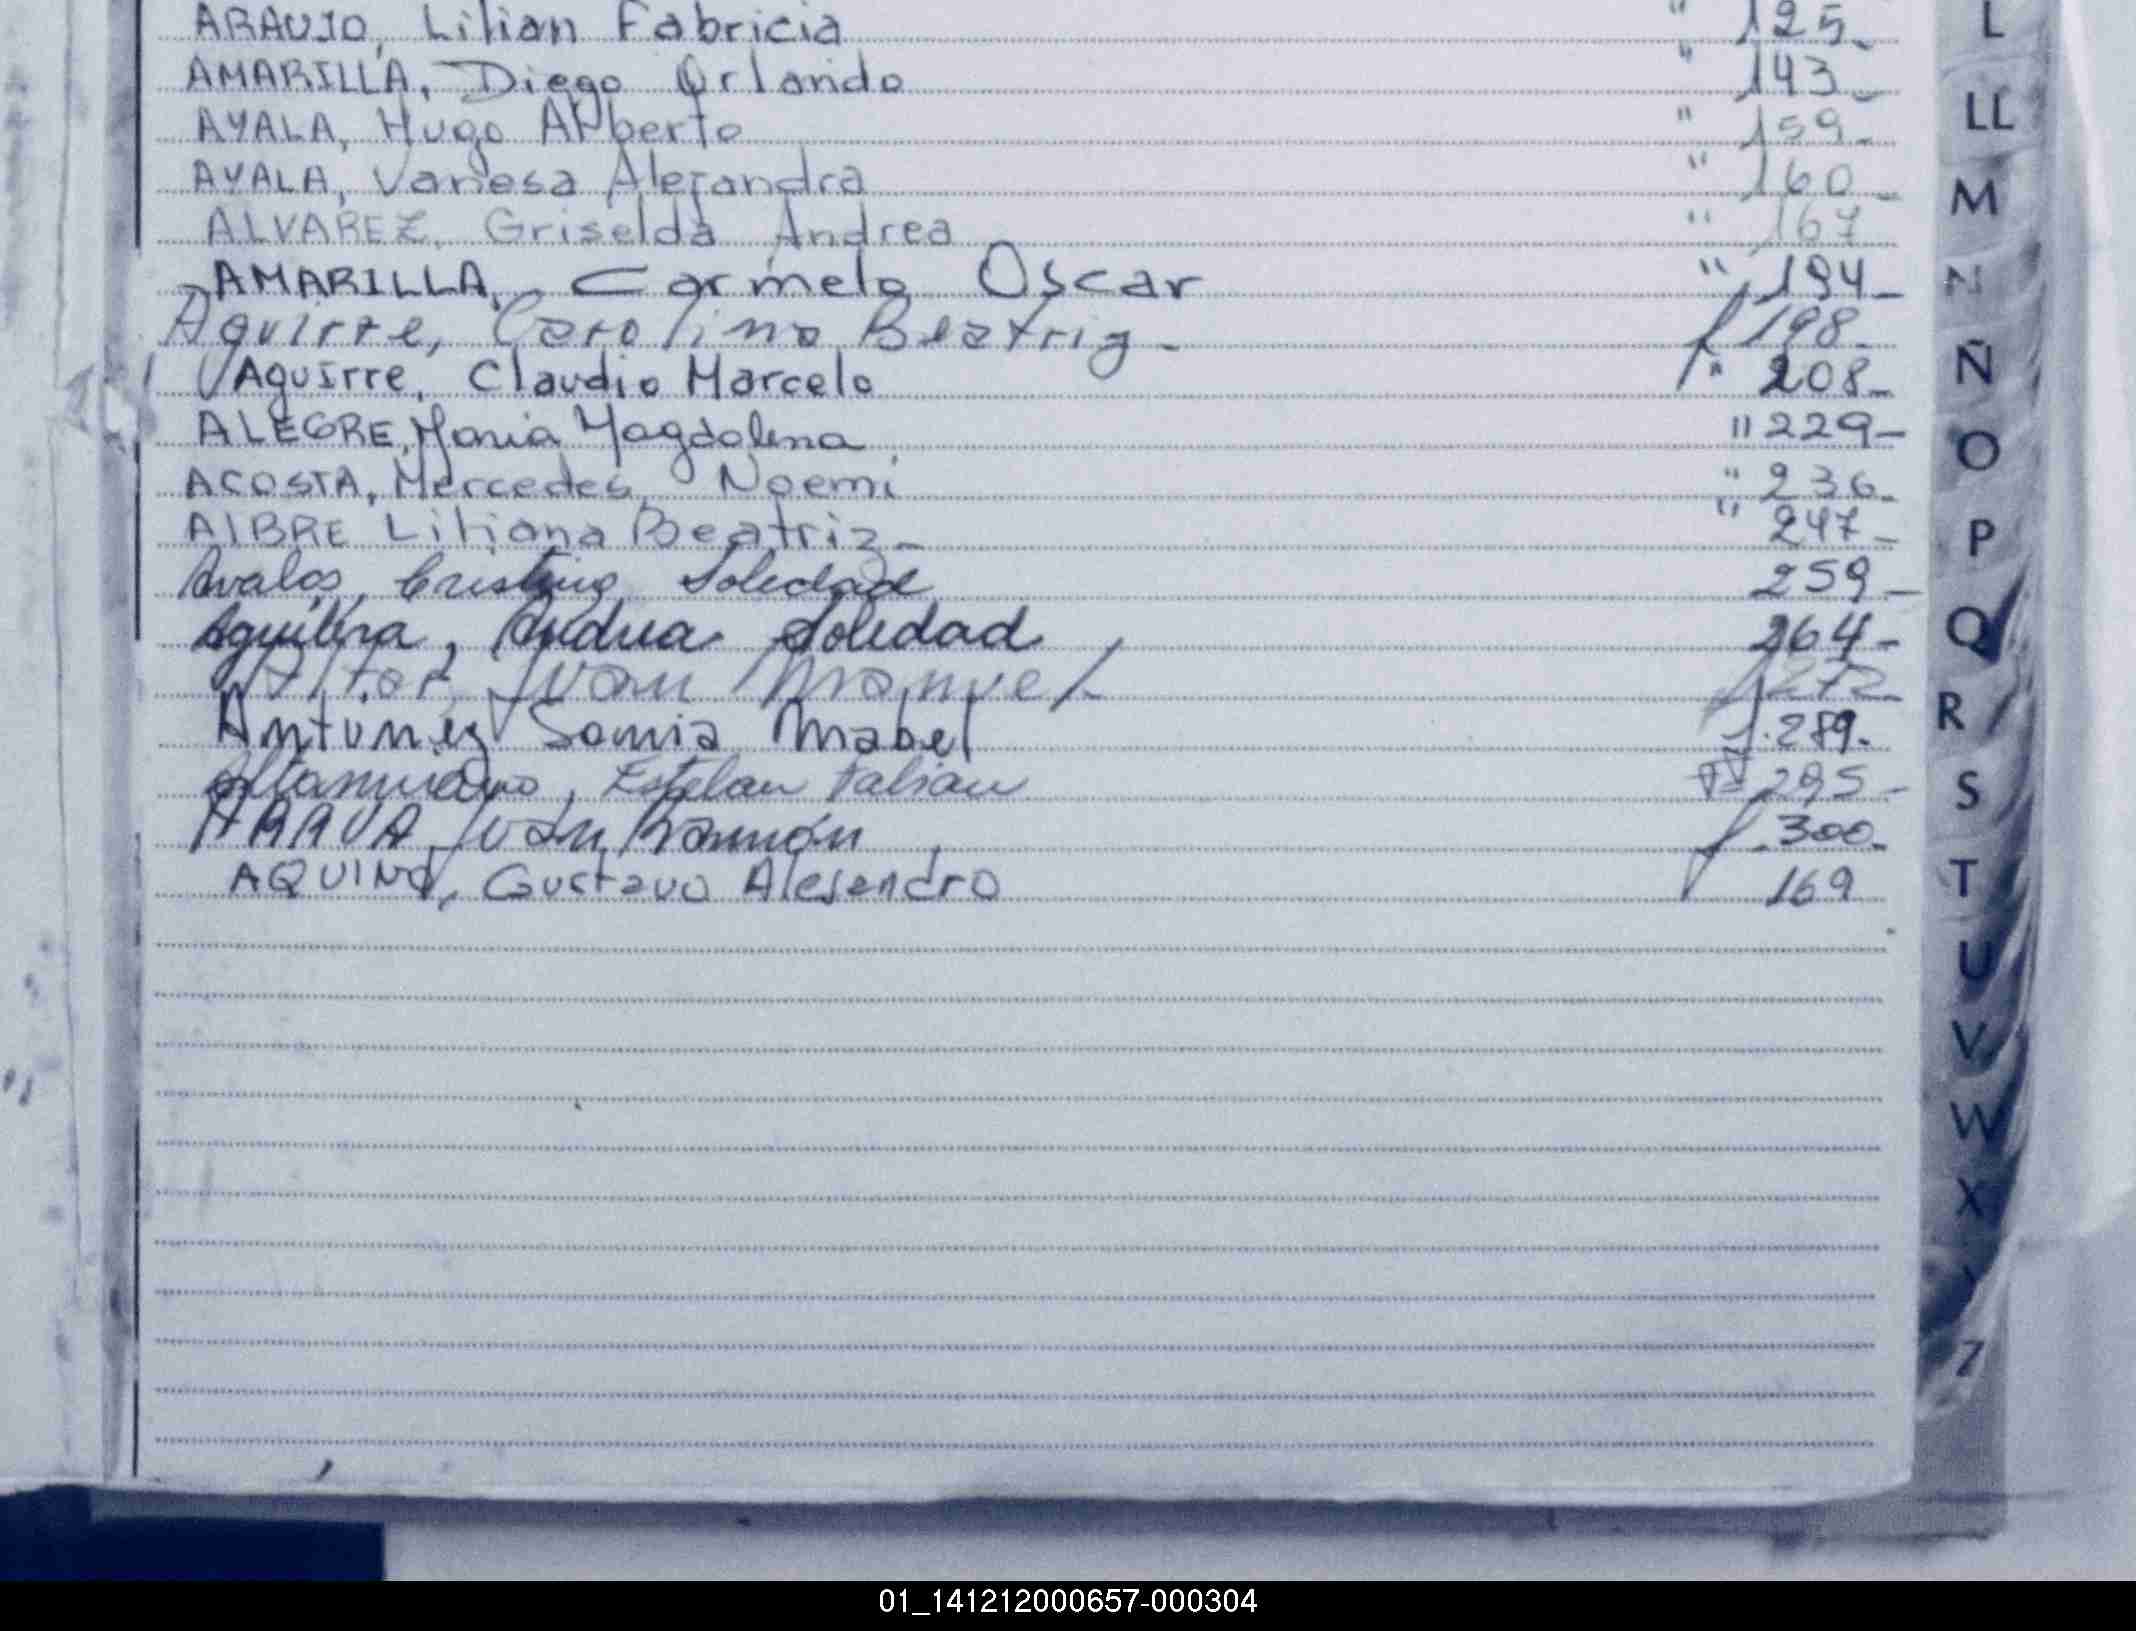 ARAUJO, Lilian Fabricia " 125_
AMARILLA, Diego Orlando " 143_
AYALA, Hugo Alberto " 159_
AYALA, Vanesa Alejandra " 160_
ALVAREZ, Griselda Andrea " 167
AMARILLA, Carmelo Oscar " 194_
Aguirre, Carolina Beatriz_ 198_
Aguirre, Claudio Marcelo " 208_
ALEGRE, Maria Magdalena " 229_
ACOSTA, Mercedes Noemi " 236_
AIBRE Liliana Beatriz_ " 247_
Avalos, Cristina Soledad 259_
Aguilera, Andrea Soledad 264_
Juan Manuel 272_
Antunez Sonia Mabel 289.
Altamirano, Esteban Fabian 295_
Juan Ramón 300_
AQUINO, Gustavo Alejandro 169
L
LL
M
N
Ñ
O
P
Q
R
S
T
U
V
W
X
Z
01_141212000657-000304